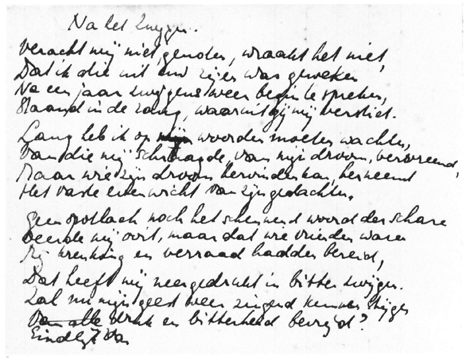 Na het zwijgen.
Veracht mij niet, genoten, wraakt het niet,
Dat ik die uit uw zijen was geweken
Na een jaar zwijgens weer begin te spreken,
Staand in de zang, waaruit gij mij verstiet.
Lang heb ik op mijn woorden moeten wachten,
Van die mij schraagde, van mijn droom, beroofd,
Maar wie zijn droom hervinden kan, herneemt
Het vaste evenwicht van zijn gedachten.
Geen spotlach noch het schennend woord der schare
Deerde mij ooit, maar dat wie vrienden waren
Mij krenking en verraad hadden bereid,
Dat heeft mij neergedrukt in bitter zwijgen.
Zal nu mijn geest weer zingend kunnen stijgen
Van alle druk en bitterheid bevrijd?
Eindlijk van